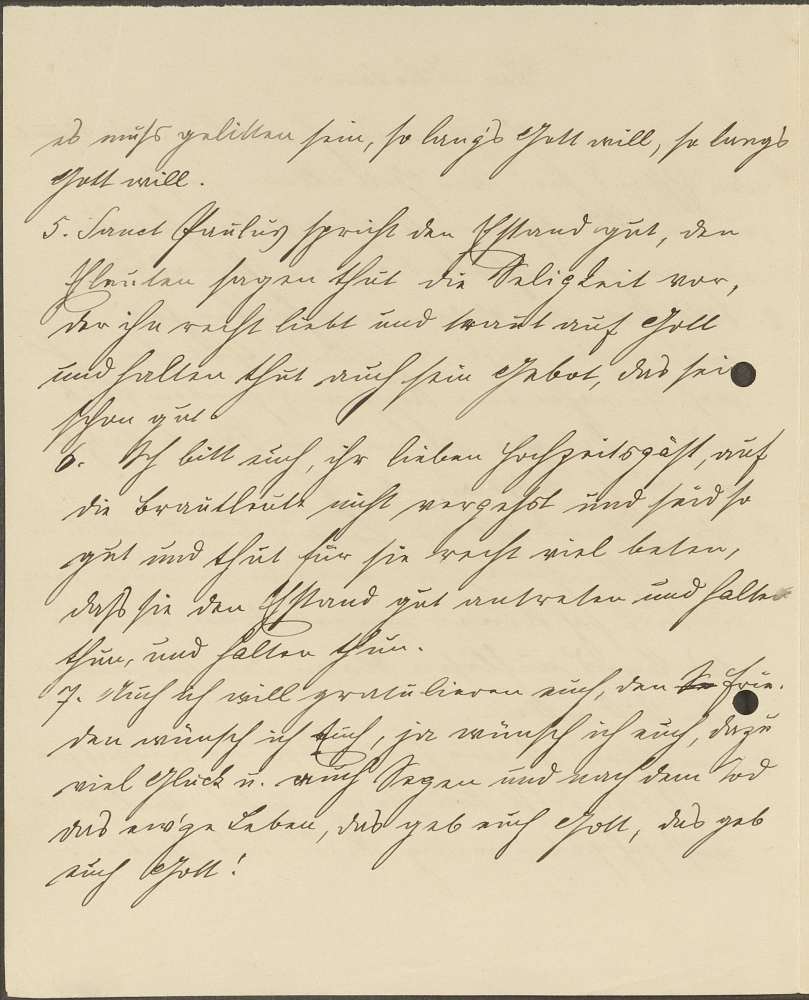 es muß gelitten sein, so lang's Gott will, so lang's
Gott will.
5. Sanct Paulus spricht den Ehstand gut, den
Ehleuten sagen thut die Seligkeit vor,
der ihn recht liebt und traut auf Gott
und halten thut auch sein Gebot, das sei
schon gut.
6. Ich bitt euch, ihr lieben Hochzeitsgäst, auf
die Brautleute nicht vergeßt und seid so
gut und thut für sie recht viel beten,
daß sie den Ehstand gut antreten und halten
thun, und halten thun.
7. Auch ich will gratulieren euch, den Frie-
den wünsch ich Euch, ja wünsch ich euch, dazu
viel Glück u. auch Segen und nach dem Tod
das ew'ge Leben, das geb euch Gott, das geb
euch Gott!